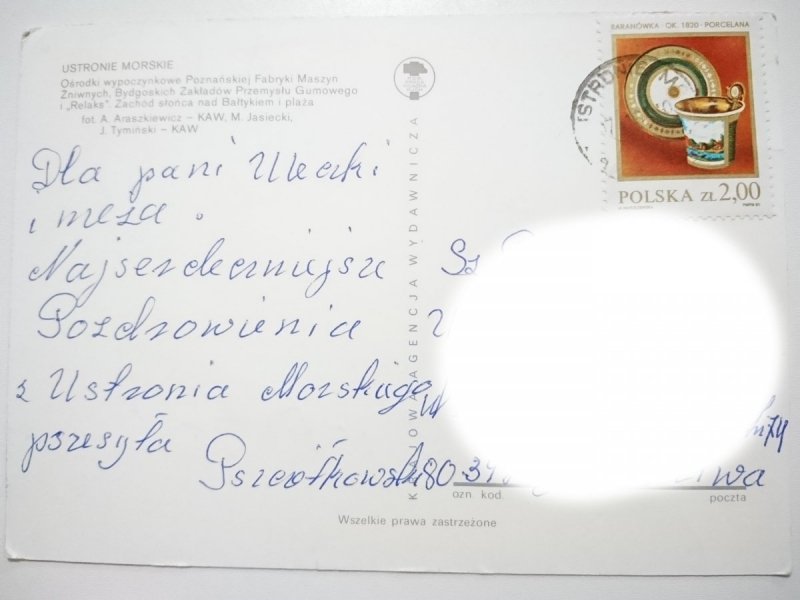 USTRONIE MORSKIE
Ośrodki wypoczynkowe Poznańskiej Fabryki Maszyn
Żniwnych, Bydgoskich Zakładów Przemysłu Gumowego
i „Relaks”. Zachód słońca nad Bałtykiem i plaża
fot. A. Araszkiewicz – KAW, M. Jasiecki,
J. Tymiński – KAW
BARANÓWKA · OK. 1820 · PORCELANA
POLSKA ZŁ 2,00
KRAJOWA AGENCJA WYDAWNICZA
Dla pani
i męża.
Najserdeczniejsze
Pozdrowienia
z Ustronia Morskiego
przesyła
80
ozn. kod.
poczta
Wszelkie prawa zastrzeżone